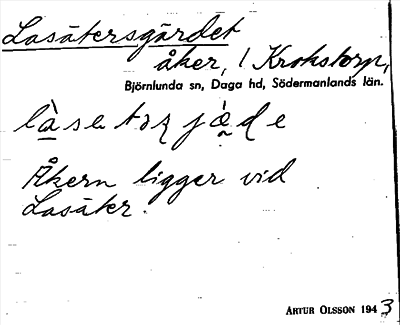 Lasätersgärdet
åker, 1 Krokstorp,
Björnlunda sn, Daga hd, Södermanlands län.
Åkern ligger vid
Lasäter.
ARTUR OLSSON 1943